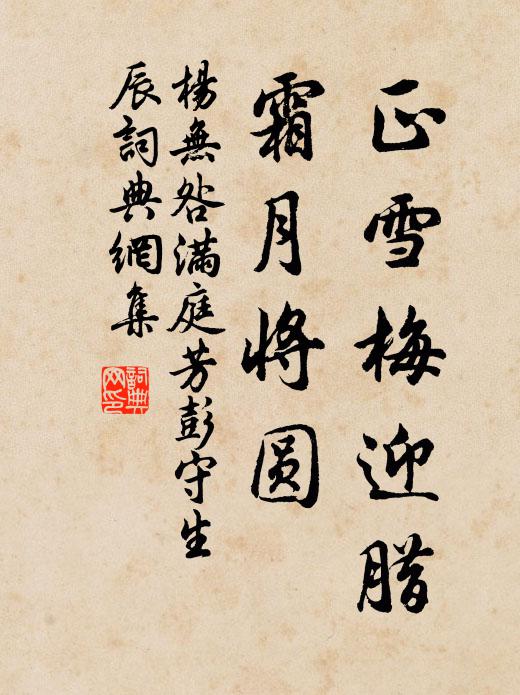 正雪梅迎腊
霜月将圆
楊無咎满庭芳彭守生
辰詞典網集
詞典网印